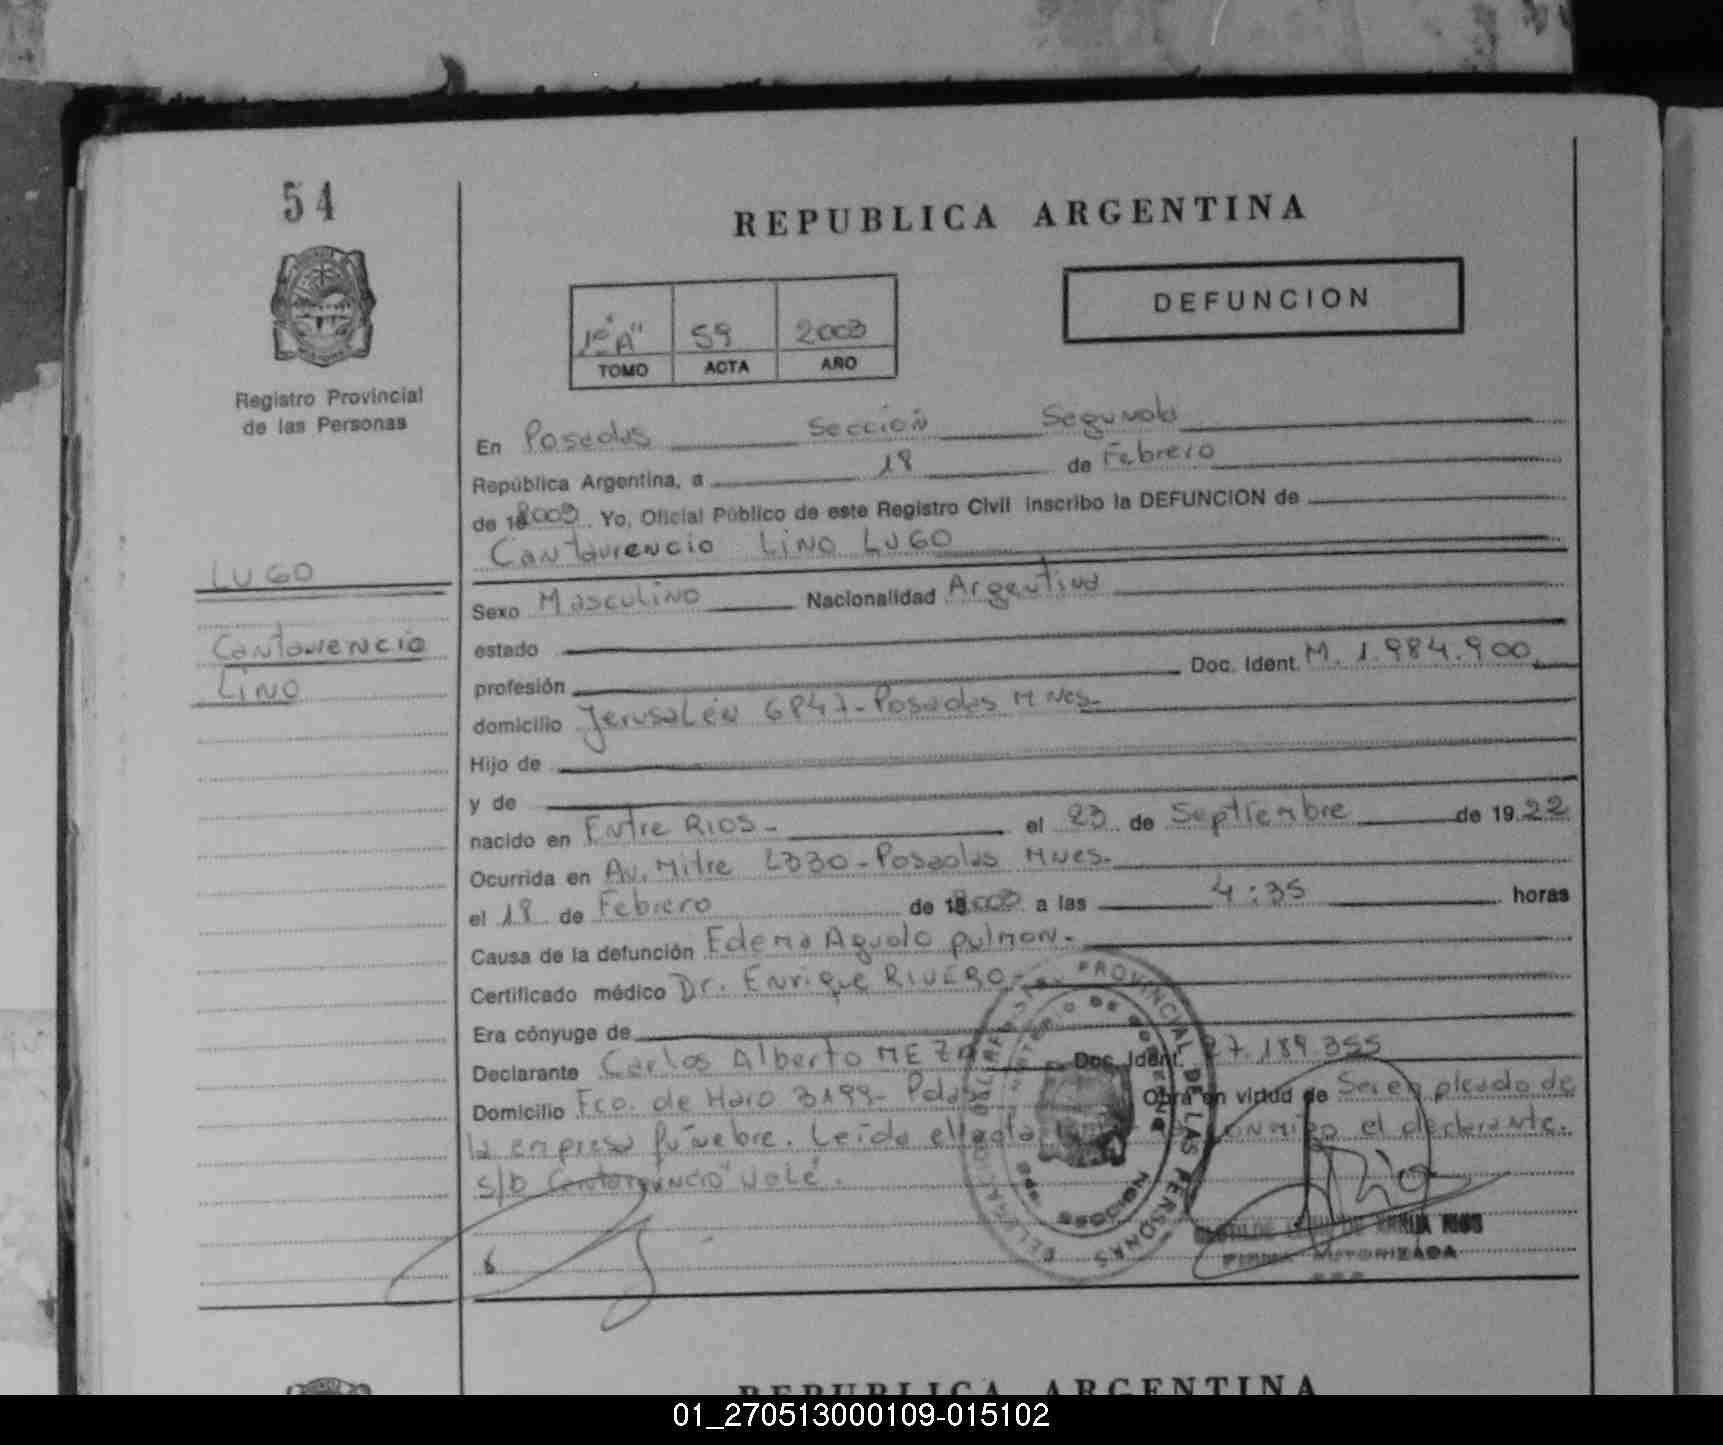 54
REPUBLICA ARGENTINA
DEFUNCION
1º "A" 59 2003
TOMO ACTA AÑO
Registro Provincial
de las Personas
En Posadas Sección Segunda
República Argentina, a 18 de Febrero
de 2003. Yo, Oficial Público de este Registro Civil inscribo la DEFUNCION de
Cantaurencio Lino LUGO
LUGO
Cantaurencio
Lino
Sexo Masculino Nacionalidad Argentina
estado
profesión Doc. Ident. M. 1.984.900
domicilio Jerusalén 6847-Posadas Mnes.
Hijo de
y de
nacido en Entre Rios- el 23 de Septiembre de 19 22
Ocurrida en Av. Mitre 2330-Posadas Mnes.
el 18 de Febrero de 2003 a las 4:35 horas
Causa de la defunción Edema Agudo pulmon.
Certificado médico Dr. Enrique RIVERO-
Era cónyuge de
Declarante Carlos Alberto MEZA Doc. Ident. 27.189.355
Domicilio Fco. de Haro 3199- Pdas Obra en virtud de Ser empleado de
la empresa fúnebre. Leída el acta el declarante.
s/b Cantaurencio "Vale".
PROVINCIAL DE LAS PERSONAS
MINISTERIO DE GOBIERNO
MISIONES
FIRMA AUTORIZADA
REPUBLICA ARGENTINA
01_270513000109-015102